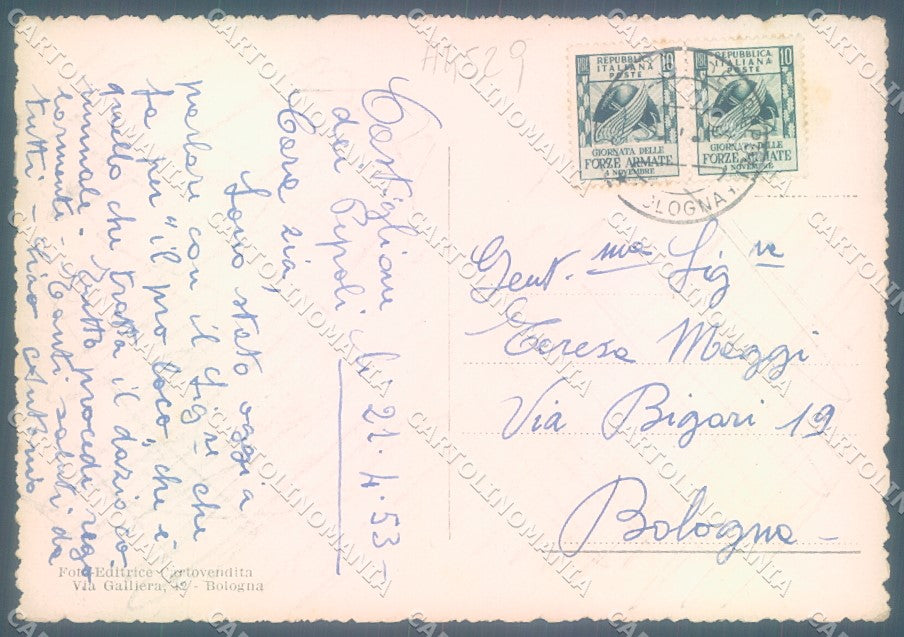 A4529
REPUBBLICA
ITALIANA
POSTE
10
GIORNATA DELLE
FORZE ARMATE
4 NOVEMBRE
REPUBBLICA
ITALIANA
POSTE
10
GIORNATA DELLE
FORZE ARMATE
4 NOVEMBRE
BOLOGNA
Castiglione
dei Pepoli, li 21.4.53
Cara zia,
Sono stato oggi a
parlare con il Sig.re che
fa per "il pro loco", che è
quello che tratta il dazio co-
munale. Tutto procede rego-
larmente. Tanti saluti da
tutti - Ciao Antonio
Gent.ma Sig.ra
Teresa Maggi
Via Bigari 19
Bologna
Foto-Editrice Cartovendita
Via Galliera, 42 - Bologna
CARTOLINOMANIA